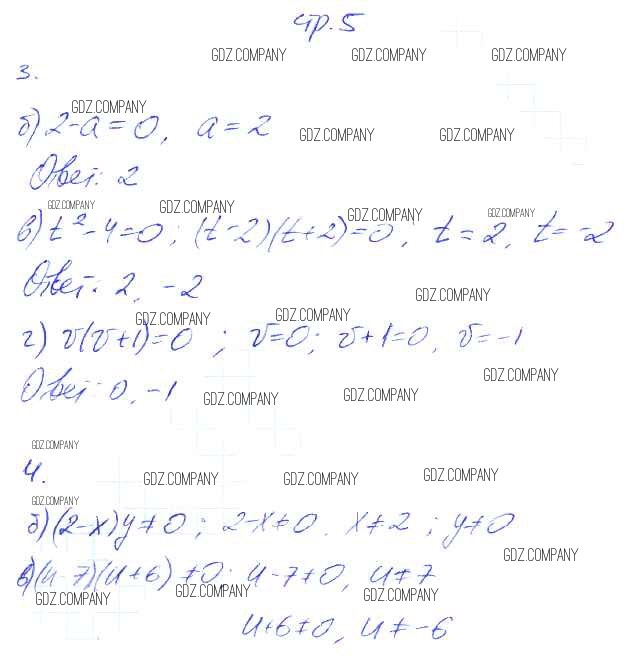 стр. 5
GDZ.COMPANY GDZ.COMPANY GDZ.COMPANY
3.
GDZ.COMPANY
б) 2-a=0, a=2 GDZ.COMPANY GDZ.COMPANY
Ответ: 2
GDZ.COMPANY GDZ.COMPANY GDZ.COMPANY GDZ.COMPANY
в) t²-4=0; (t-2)(t+2)=0; t=2, t=-2
Ответ: 2, -2
GDZ.COMPANY
GDZ.COMPANY GDZ.COMPANY
г) v(v+1)=0; v=0; v+1=0, v=-1
GDZ.COMPANY
Ответ: 0, -1 GDZ.COMPANY GDZ.COMPANY
GDZ.COMPANY
4. GDZ.COMPANY GDZ.COMPANY GDZ.COMPANY
GDZ.COMPANY
б) (2-x)y≠0; 2-x≠0. x≠2; y≠0
GDZ.COMPANY
в) (u-7)(u+6)≠0: u-7≠0, u≠7
GDZ.COMPANY GDZ.COMPANY GDZ.COMPANY
u+6≠0, u≠-6